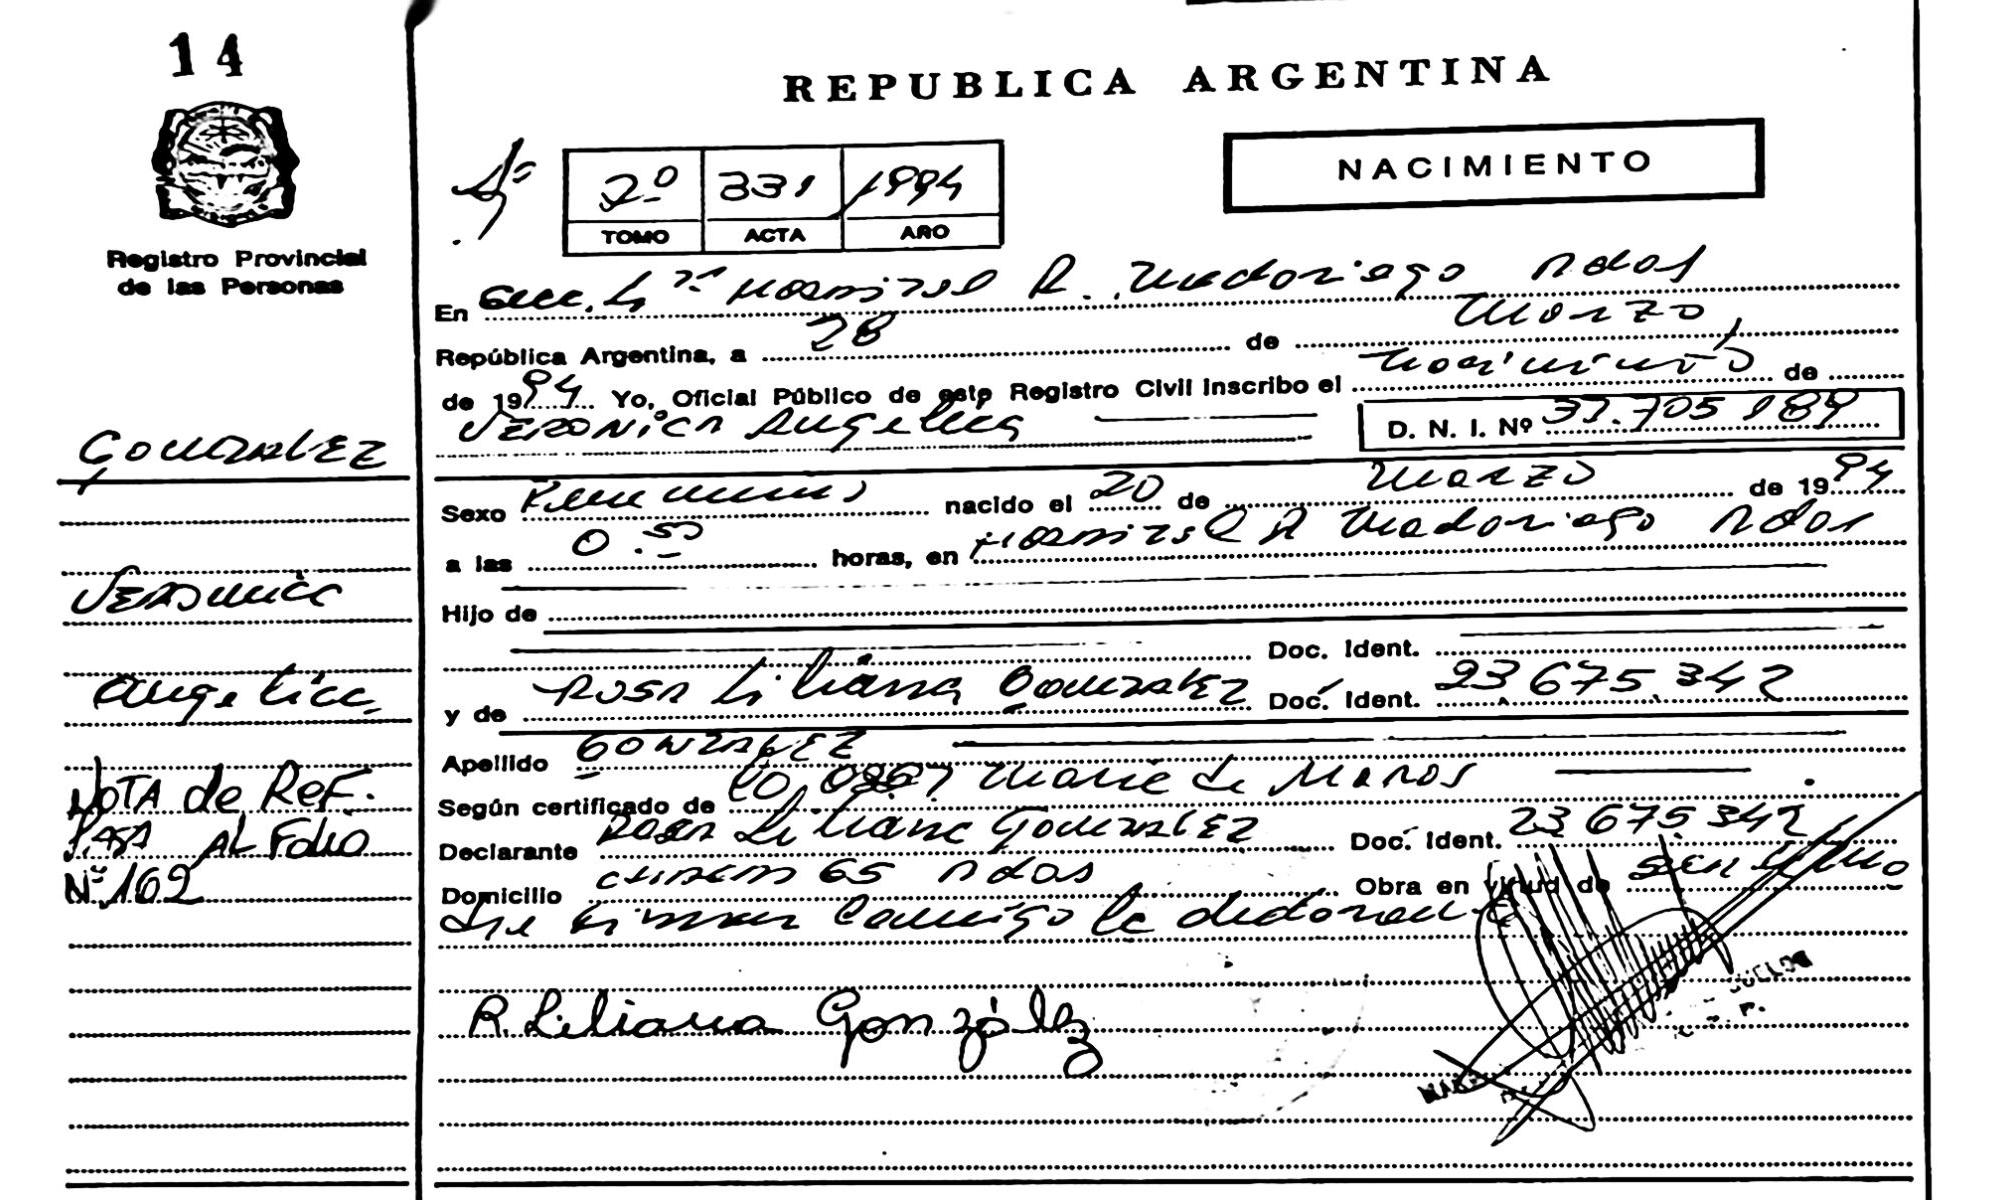 14
Registro Provincial
de las Personas
GONZALEZ
VERONICA
Angelica
NOTA de ReF.
PASA AL Folio
Nº 169
REPUBLICA ARGENTINA
NACIMIENTO
2º 331 1994
TOMO ACTA AÑO
En Secc. 4ª Hospital R. Madariaga Pdas
República Argentina, a 28 de Marzo
de 1994 Yo, Oficial Público de este Registro Civil inscribo el nacimiento de
VERONICA Angelica D. N. I. Nº 37.705 189
Sexo Femenino nacido el 20 de Marzo de 1994
a las 0.50 horas, en Hospital R Madariaga Pdas
Hijo de
Doc. Ident.
y de Rosa Liliana Gonzalez Doc. Ident. 23.675.342
Apellido GONZALEZ
Según certificado de María de
Declarante Rosa Liliana GONZALEZ Doc. Ident. 23 675 342
Domicilio 65 Pdas Obra en virtud de
firman conmigo la
R. Liliana González